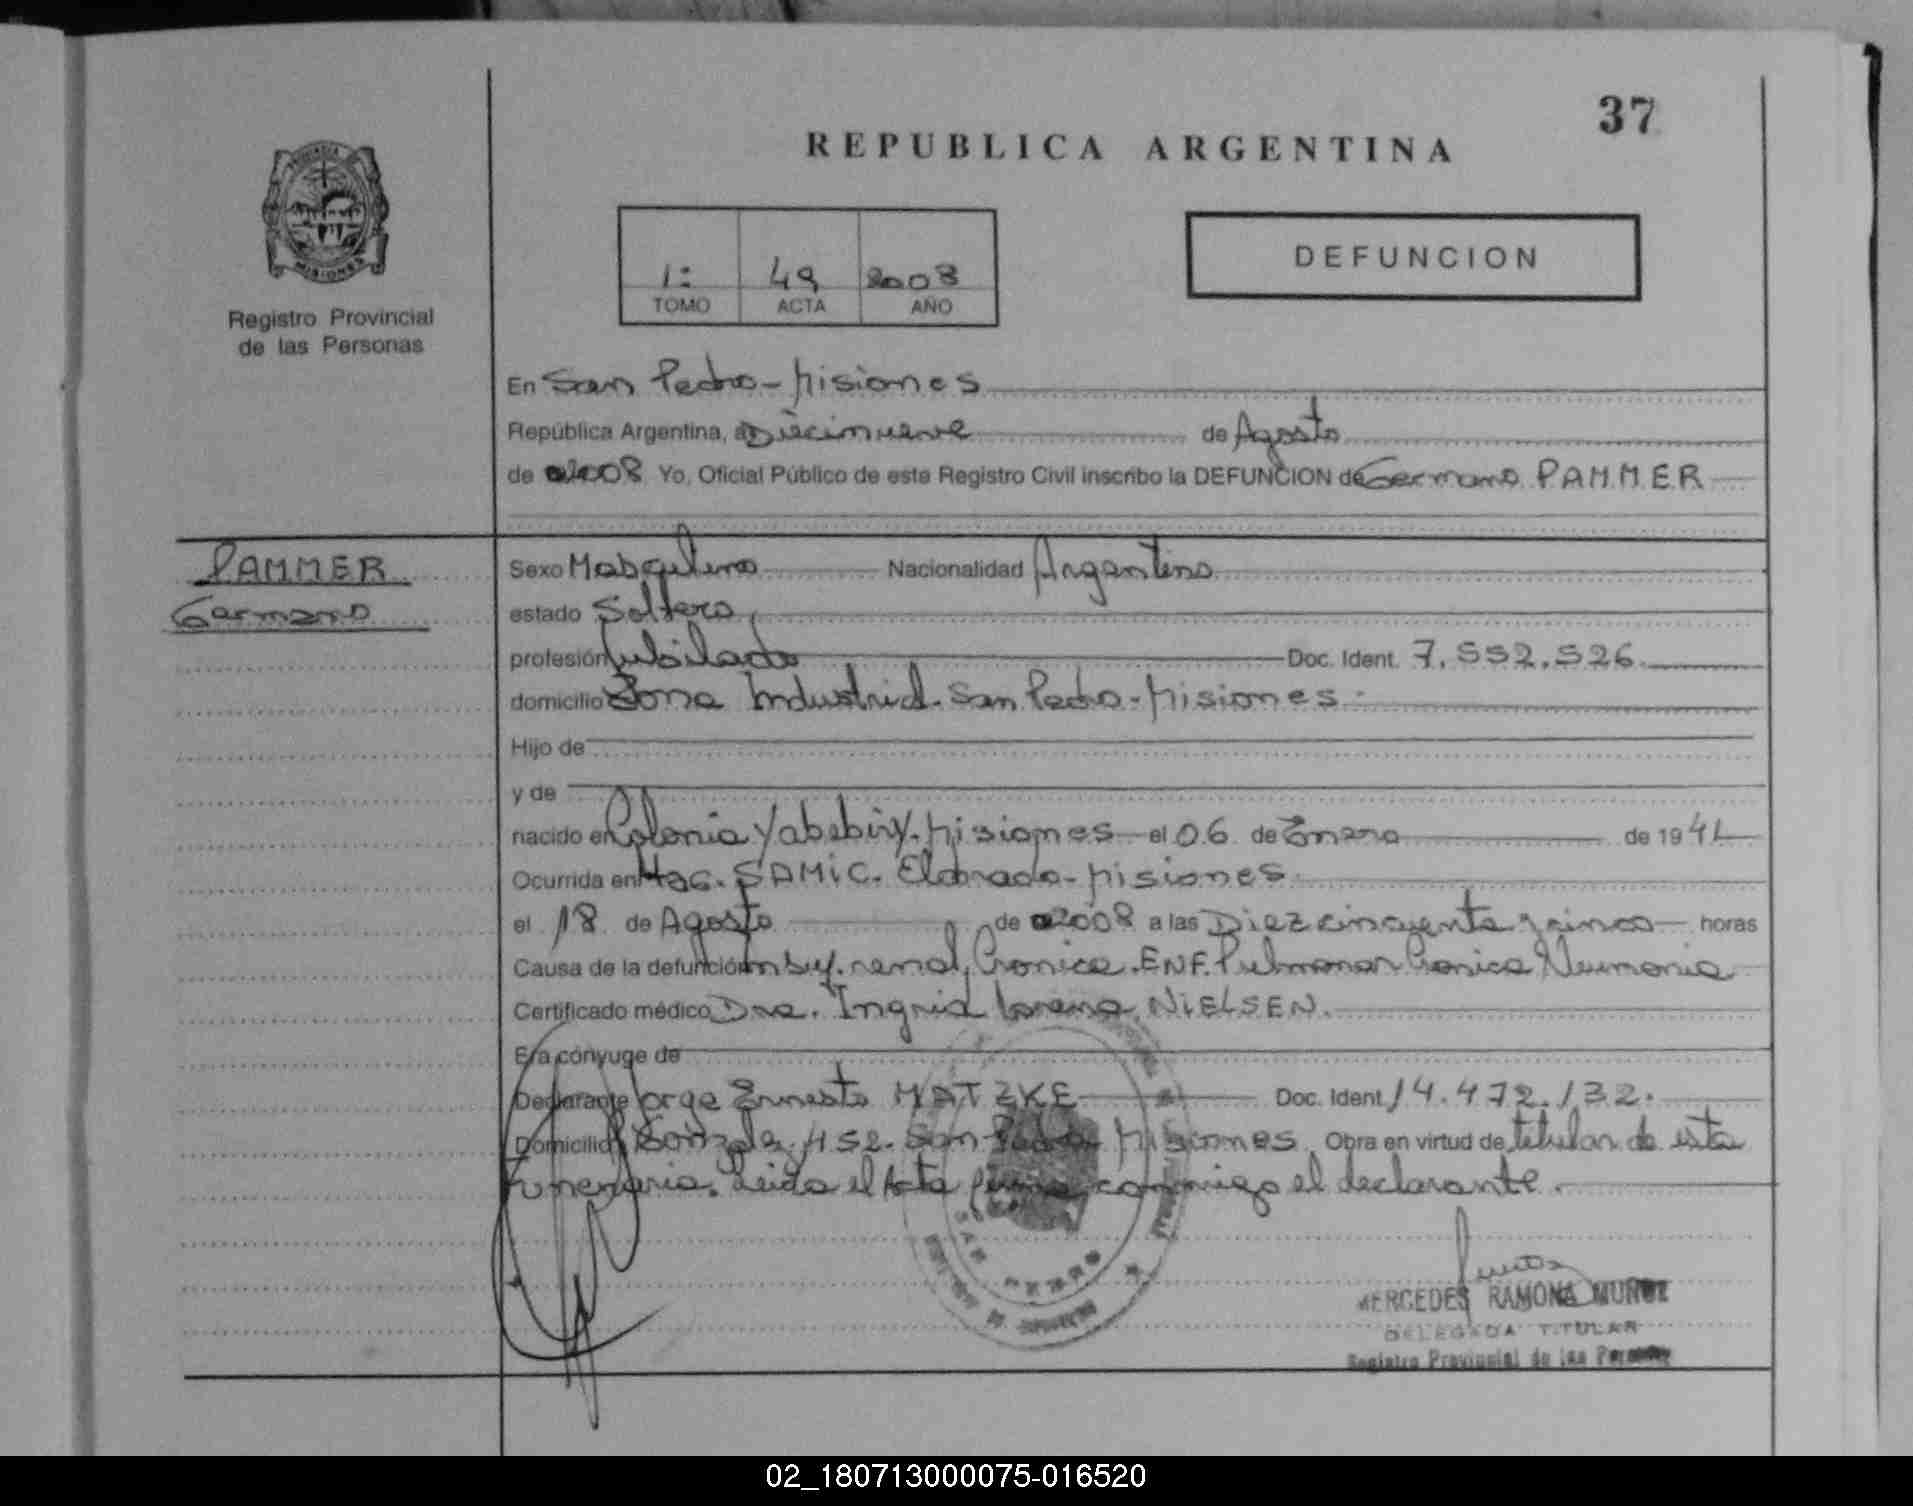 37
REPUBLICA ARGENTINA
PROVINCIA
MISIONES
Registro Provincial
de las Personas
1: 49 2008
TOMO ACTA AÑO
DEFUNCION
En San Pedro - Misiones
República Argentina, a Diecinueve de Agosto
de 2008 Yo, Oficial Público de este Registro Civil inscribo la DEFUNCION de Germano PAMMER
PAMMER
Germano
Sexo Masculino Nacionalidad Argentino
estado Soltero
profesión Jubilado Doc. Ident. 7.552.526.
domicilio Zona Industrial. San Pedro - Misiones.
Hijo de
y de
nacido en Colonia Yabebiry. Misiones el 06 de Enero de 1941
Ocurrida en Hos. SAMIC. Eldorado - Misiones
el 18 de Agosto de 2008 a las Diez cincuenta y cinco horas
Causa de la defunción Insuf. renal Cronica. ENF. Pulmonar Cronica Neumonia
Certificado médico Dra. Ingrid Lorena NIELSEN.
Era cónyuge de
Declarante Jorge Ernesto MATZKE Doc. Ident. 14.472.132.
Domicilio 452. San Pedro Misiones. Obra en virtud de titular de esta
Funeraria. Leida el Acta firma conmigo el declarante.
SAN PEDRO
MERCEDES RAMONA MUÑOZ
DELEGADA TITULAR
Registro Provincial de las Personas
02_180713000075-016520